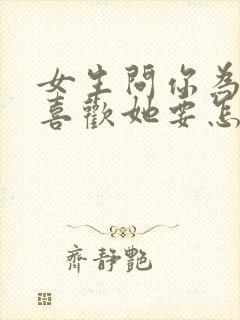 女生問你為
喜歡她要怎
齊靜艷